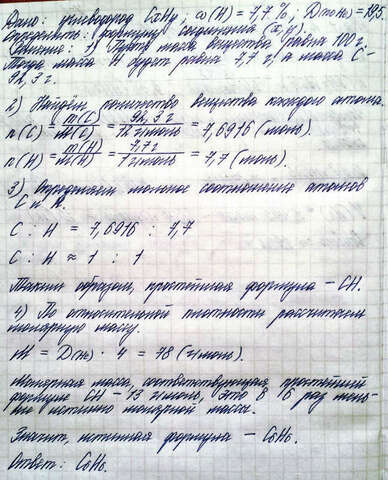 Дано: углеводород CxHy; ω(H) = 7,7 %; D(по He) = 19,5.
Определить: формулу соединения (x, y).
Решение: 1) Пусть масса вещества равна 100 г.
Тогда масса H будет равна 7,7 г, а масса C -
92,3 г.
2) Найдём количество вещества каждого атома.
n(C) = m(C)/M(C) = 92,3 г/12 г/моль = 7,6916 (моль).
n(H) = m(H)/M(H) = 7,7 г/1 г/моль = 7,7 (моль).
3) Определяем мольное соотношение атомов
C и H.
C : H = 7,6916 : 7,7
C : H ≈ 1 : 1
Таким образом, простейшая формула - CH.
4) По относительной плотности рассчитаем
молярную массу.
M = D(He) · 4 = 78 (г/моль).
Молярная масса, соответствующая простейшей
формуле CH - 13 г/моль, это в 6 раз мень-
ше истинно молярной массы.
Значит, истинная формула - C6H6.
Ответ: C6H6.